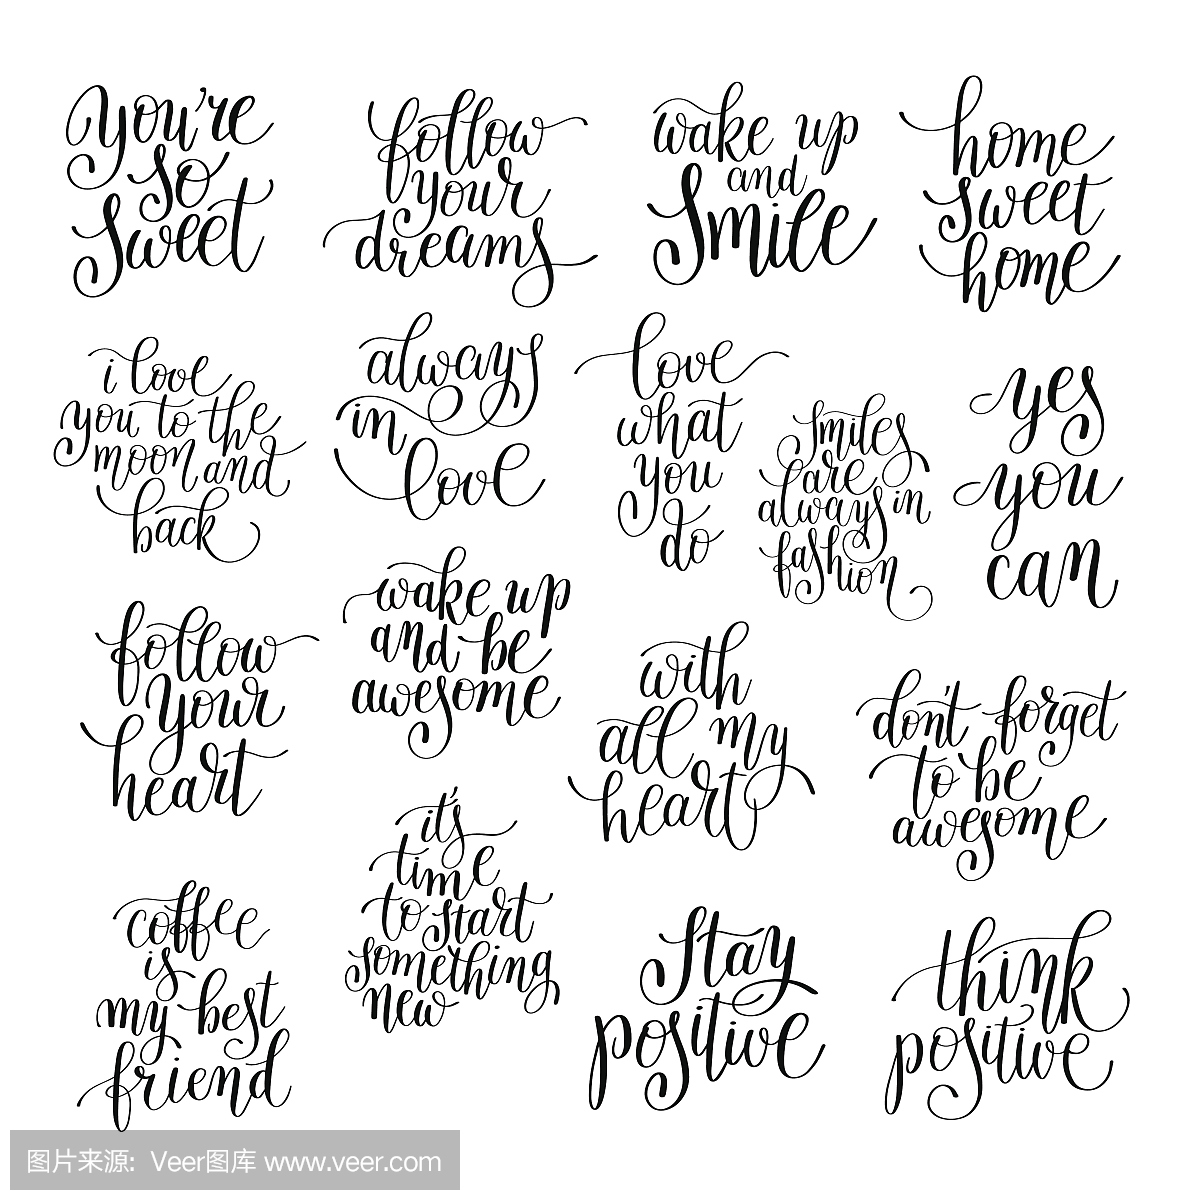 you're
so
sweet
follow
your
dreams
wake up
and
smile
home
sweet
home
i love
you to the
moon and
back
always
in
love
love
what
you
do
smiles
are
always in
fashion
yes
you
can
follow
your
heart
wake up
and be
awesome
with
all my
heart
don't forget
to be
awesome
coffee
is
my best
friend
it's
time
to start
something
new
stay
positive
think
positive
图片来源: Veer图库 www.veer.com